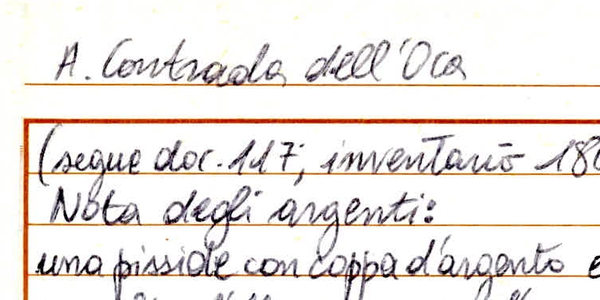 A. Contrada dell'Oca
(segue doc. 117, inventario
Nota degli argenti:
una pisside con coppa d'argento